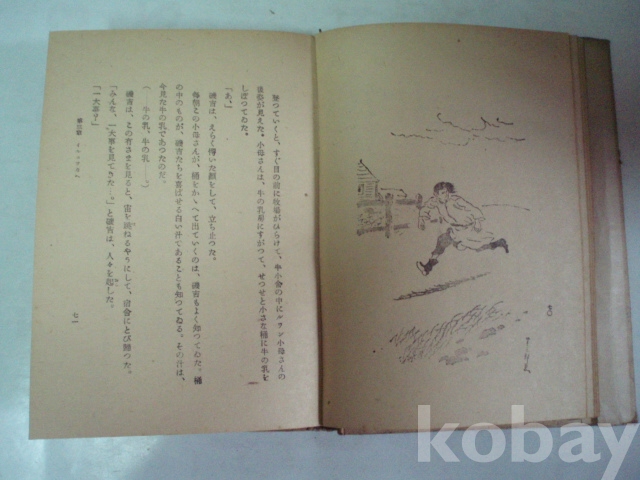 登つていくと、すぐ目の前に牧場がひらけて、牛小舎の中にルラン小母さんの
姿が見えた。小母さんは、牛の乳房にすがつて、せつせと小さな桶に牛の乳を
しぼつてゐた。
「あ。」
磯吉は、えらく得いた顔をして、立ち止つた。
毎朝この小母さんが、桶をかゝへて出ていくのは、磯吉もよく知つてゐた。桶
の中のものが、磯吉たちを喜ばせる白い汁であることも知つてゐる。その汁は、
今見た牛の乳であつたのだ。
(――牛の乳、牛の乳――。)
磯吉は、この有さまを見ると、宙を跳ねるやうにして、宿舎にとび歸つた。
「みんな、一大事を見てきた――。」と磯吉は、人々を起した。
「一大事?」
第三章
七一
kobay